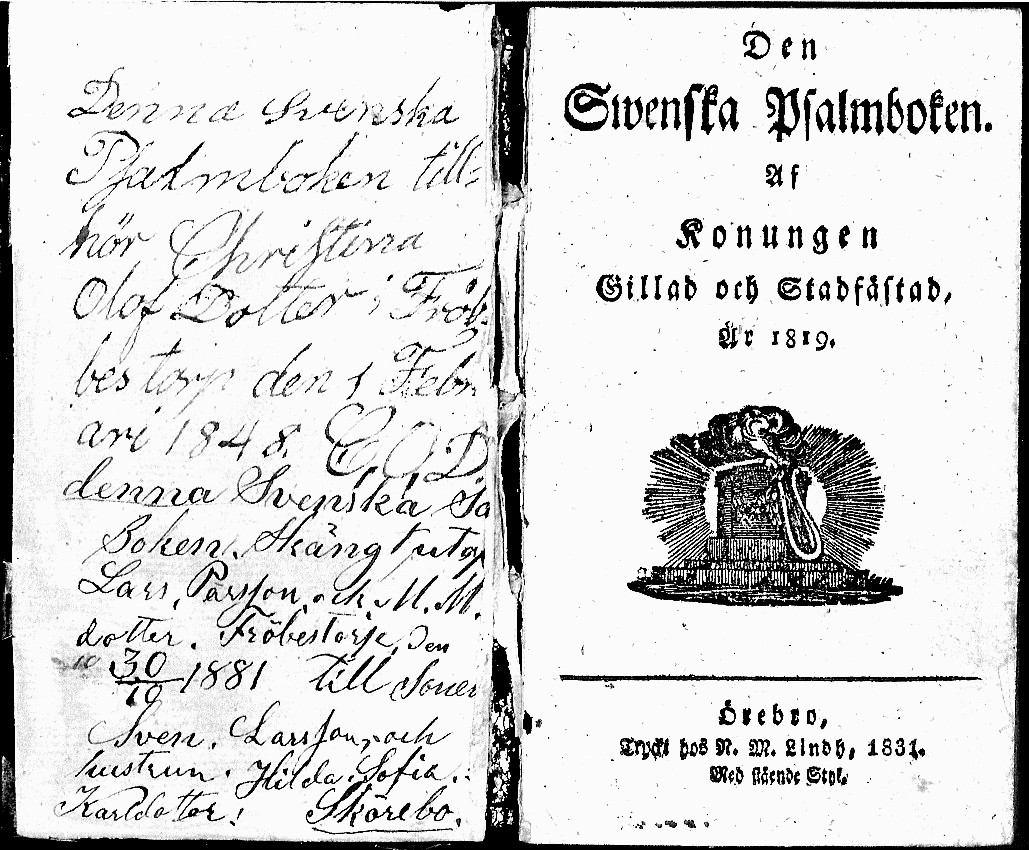 Denna Svenska
Psalmboken till-
hör Christina
Olof Dotter i Fröb-
bestorp den 1 Febr
ari 1848. C. O. D.
denna Svenska Sa
Boken. Skängt utaf
Lars, Parsson, och M. M.
dotter. Fröbestorp, Den
30/10 1881 till Sonen
Sven. Larsson, och
hustrun. Hilda. Sofia.
Karldotter! Skörebo.
Den
Swenska Psalmboken.
Af
Konungen
Gillad och Stadfästad,
År 1819.
Örebro,
Tryckt hos N. M. Lindh, 1831.
Med stående Styl.